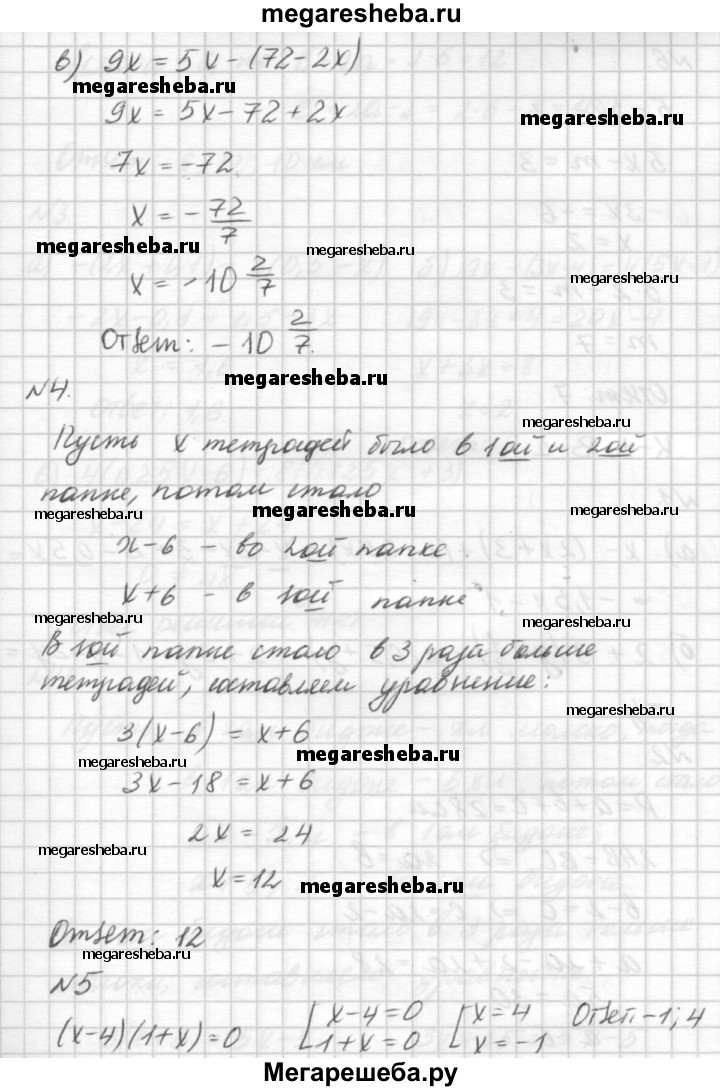 megaresheba.ru
в) 9x = 5x - (72 - 2x)
megaresheba.ru
9x = 5x - 72 + 2x
megaresheba.ru
7x = -72
x = - 72/7
megaresheba.ru
megaresheba.ru
x = -10 2/7
megaresheba.ru
Ответ: -10 2/7.
megaresheba.ru
№4.
megaresheba.ru
Пусть x тетрадей было в 1ой и 2ой
папке, потом стало
megaresheba.ru
megaresheba.ru
megaresheba.ru
x-6 - во 2ой папке.
x+6 - в 1ой папке
megaresheba.ru
megaresheba.ru
В 1ой папке стало в 3 раза больше
тетрадей, составляем уравнение:
megaresheba.ru
3(x-6) = x+6
megaresheba.ru
megaresheba.ru
3x-18 = x+6
2x = 24
megaresheba.ru
x = 12
megaresheba.ru
Ответ: 12
megaresheba.ru
megaresheba.ru
№5
(x-4)(1+x)=0 [x-4=0 [x=4 Ответ: -1; 4
1+x=0 x=-1
Мегарешеба.ру